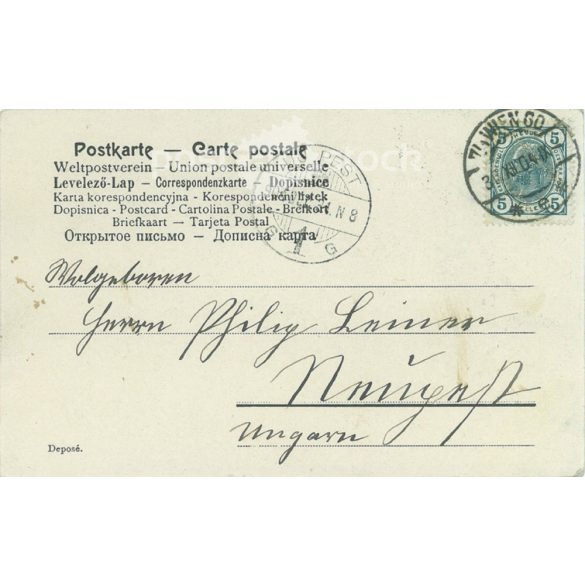 Postkarte — Carte postale
Weltpostverein - Union postale universelle
Levelező-Lap - Correspondenzkarte - Dopisnice
Karta korespondencyjna - Korespondenční lístek
Dopisnica - Postcard - Cartolina Postale - Brefkort
Briefkaart — Tarjeta Postal
Открытое письмо — Дописна карта
WIEN 60
5 5
5 5
PEST
N 8
G G
Wolgeboren
Herrn Philip Leiner
Neupest
Ungarn
Deposé.